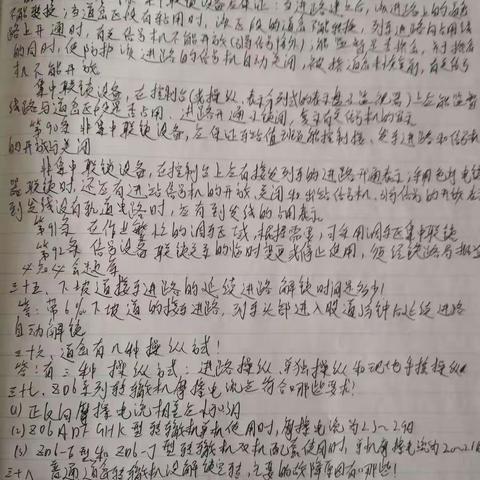 不能转换；当道岔区段有占用时，该区段的道岔不能转换，列车进路向占用线
路上开通时，有关信号机不能开放（引导信号除外），能监督是否挤岔，于挤岔
的同时，使防护该进路的信号机自动关闭，被挤道岔未恢复前，有关信号
机不能开放。
集中联锁设备，在控制台（或操纵、表示分列式的表示盘及监视器）上应能监督
线路与道岔区段是否占用，进路开通及锁闭，复示有关信号机的显示
第90条 非集中联锁设备，应保证车站值班员能控制接、发车进路和信号机
的开放与关闭
非集中联锁设备，在控制台上应有接发列车的进路开通表示；采用色灯电锁
器联锁时，还应有进站信号机的开放、关闭和出站信号机、引导信号的开放表示
到发线设有轨道电路时，应有到发线的占用表示
第91条 在作业繁忙的调车区域，根据需要，可采用调车区集中联锁
第92条 信号设备联锁关系的临时变更或停止使用，须经铁路局批准
三十五、下坡道接车进路的延续进路解锁时间是多少！
答：带6‰下坡道的接车进路，列车头部进入股道3分钟后延续进路
自动解锁
三十六、道岔有几种操纵方式！
答：有三种操纵方式：进路操纵，单独操纵和现地手摇操纵
三十七、ZD6系列转辙机摩擦电流应符合哪些要求！
(1) 正反向摩擦电流相差
型转辙机单机使用时，摩擦电流为2.3～2.9A
型转辙机双机配套使用时，单机摩擦电流为2.0～2.
普通道岔转辙机没解锁空转，主要的故障原因有哪些！